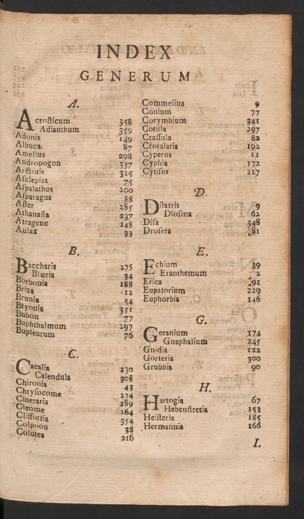 INDEX
GENERUM
A.
Acrosticum 358
Adianthum 359
Adonis 149
Albuca 87
Amellus 298
Andropogon 357
Arctotis 315
Asclepias 75
Aspalathus 200
Asparagus 88
Aster 285
Athanasia 237
Atragene 148
Aulax 33
B.
Baccharis 275
Blæria 34
Borbonia 188
Briza 12
Brunia 54
Bryonia 351
Bubon 77
Buphthalmum 297
Bupleurum 76
C.
Cacalia 230
Calendula 308
Chironia 43
Chrysocome 234
Cineraria 289
Cleome 164
Cliffortia 354
Colpoon 38
Colutea 216
Commelina 9
Conium 77
Corymbium 341
Cotula 297
Crassula 82
Crotalaria 192
Cyperus 11
Cyphia 172
Cytisus 217
D.
Dilatris 9
Diosma 62
Disa 348
Drosera 81
E.
Echium 39
Eranthemum 2
Erica 91
Eupatorium 229
Euphorbia 146
G.
Geranium 174
Gnaphalium 245
Gnidia 122
Gorteria 300
Grubbia 90
H.
Hartogia 67
Hebenstretia 153
Heisteria 185
Hermannia 166
I.